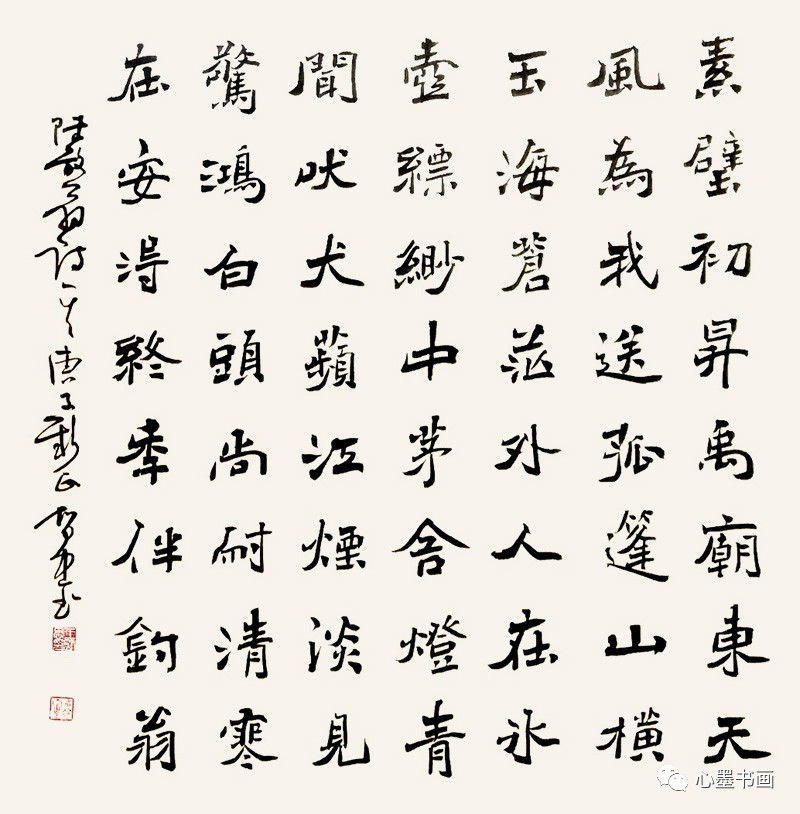 素璧初昇禹廟東天
風為我送孤篷山橫
玉海蒼茫外人在冰
壺縹緲中茅舍燈青
聞吠犬蘋江煙淡見
驚鴻白頭尚耐清寒
在安得終秊伴釣翁
陸放翁詩一首庚子新正
心墨书画